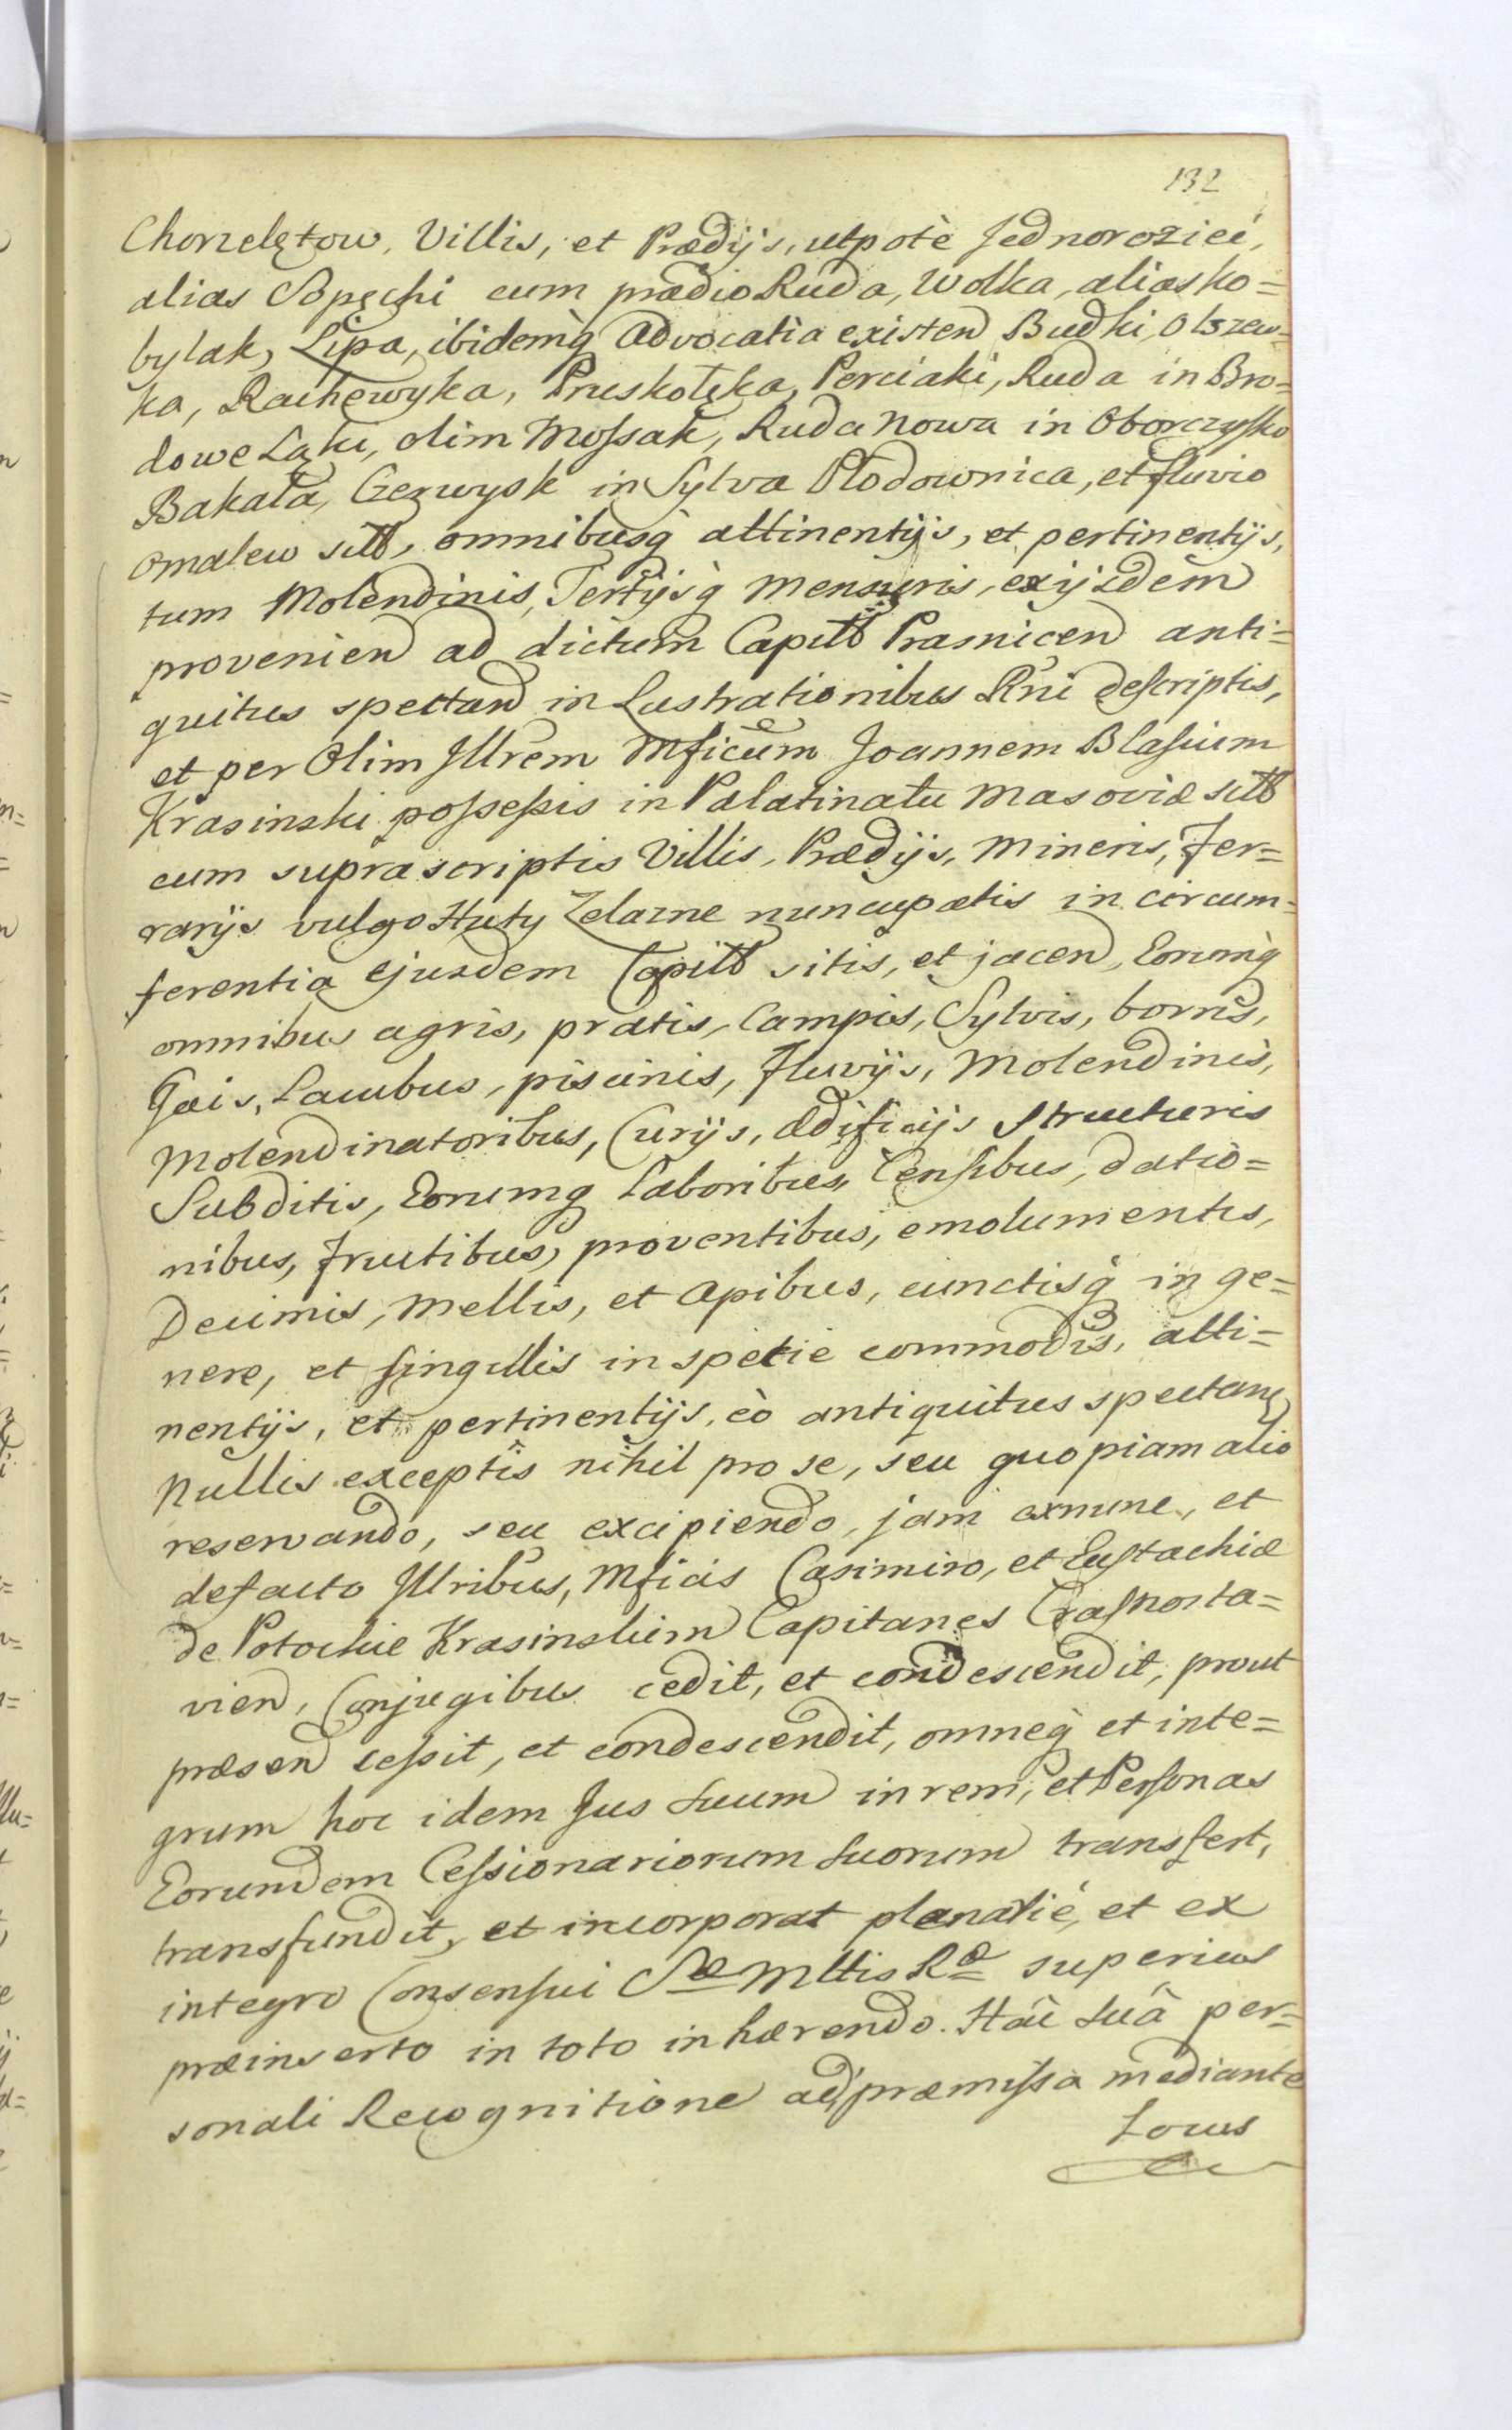 132
Chorzelętow, Villis, et Prædijs, utpotè Jednorozieć,
alias Sopęchi cum prædio Ruda, Wolka, alias Ko=
bylak, Lipa, ibidemq̀ Advocatia existen Budki, Olszew=
ka, Rachewyka, Pruskołęka, Perciaki, Ruda in Bro=
dowe Łąki, olim Mossak, Ruda Nowa in Oborczysko
Bakała, Gerwysk in Sylva Płodownica, et fluvio
Omalew sitt, omnibusq̀ attinentijs, et pertinentijs,
tum Molendinis, Tertijsq̀ Mensuris, ex ijsdem
provenien ad dictum Capitt Prasnicen anti=
quitus spectan in Lustrationibus Rni descriptis,
et per Olim Illrem Mficum Joannem Blasium
Krasinski possessis in Palatinatu Masoviæ sitt
cum suprascriptis Villis, Prædijs, Mineris, Fer=
rarijs vulgo Huty Zelazne nuncupatis in circum=
ferentia ejusdem Capitt sitis, et jacen, Eorumq̀
omnibus agris, pratis, Campis, Sylvis, borris,
Gais, Lacubus, piscinis, Fluvijs, Molendinis,
Molendinatoribus, Curijs, ædificijs structuris
Subditis, Eorumq̀ Laboribus, Censibus, datio=
nibus, fructibus, proventibus, emolumentis,
Decimis, Mellis, et Apibus, cunctisq̀ in ge=
nere, et singulis in specie commodis, atti=
nentijs, et pertinentijs, eò antiquitus spectan,
Nullis exceptis nihil pro se, seu quopiam alio
reservando, seu excipiendo, jam exnunc, et
defacto Illribus, Mficis Casimiro, et Eustachiæ
de Potockie Krasinskim Capitanes Crasnosta=
vien, Conjugibus cedit, et condescendit, prout
præsen cessit, et condescendit, omneq̀ et inte=
grum hoc idem Jus Suum in rem, et Personas
Eorundem Cessionariorum Suorum transfert,
transfundit, et incorporat plenariè, et ex
integro Consensui Sæ Mttis Ræ superius
præinserto in toto inhærendo. Hâc Suâ per=
sonali Recognitione ad præmissa mediante
Locus